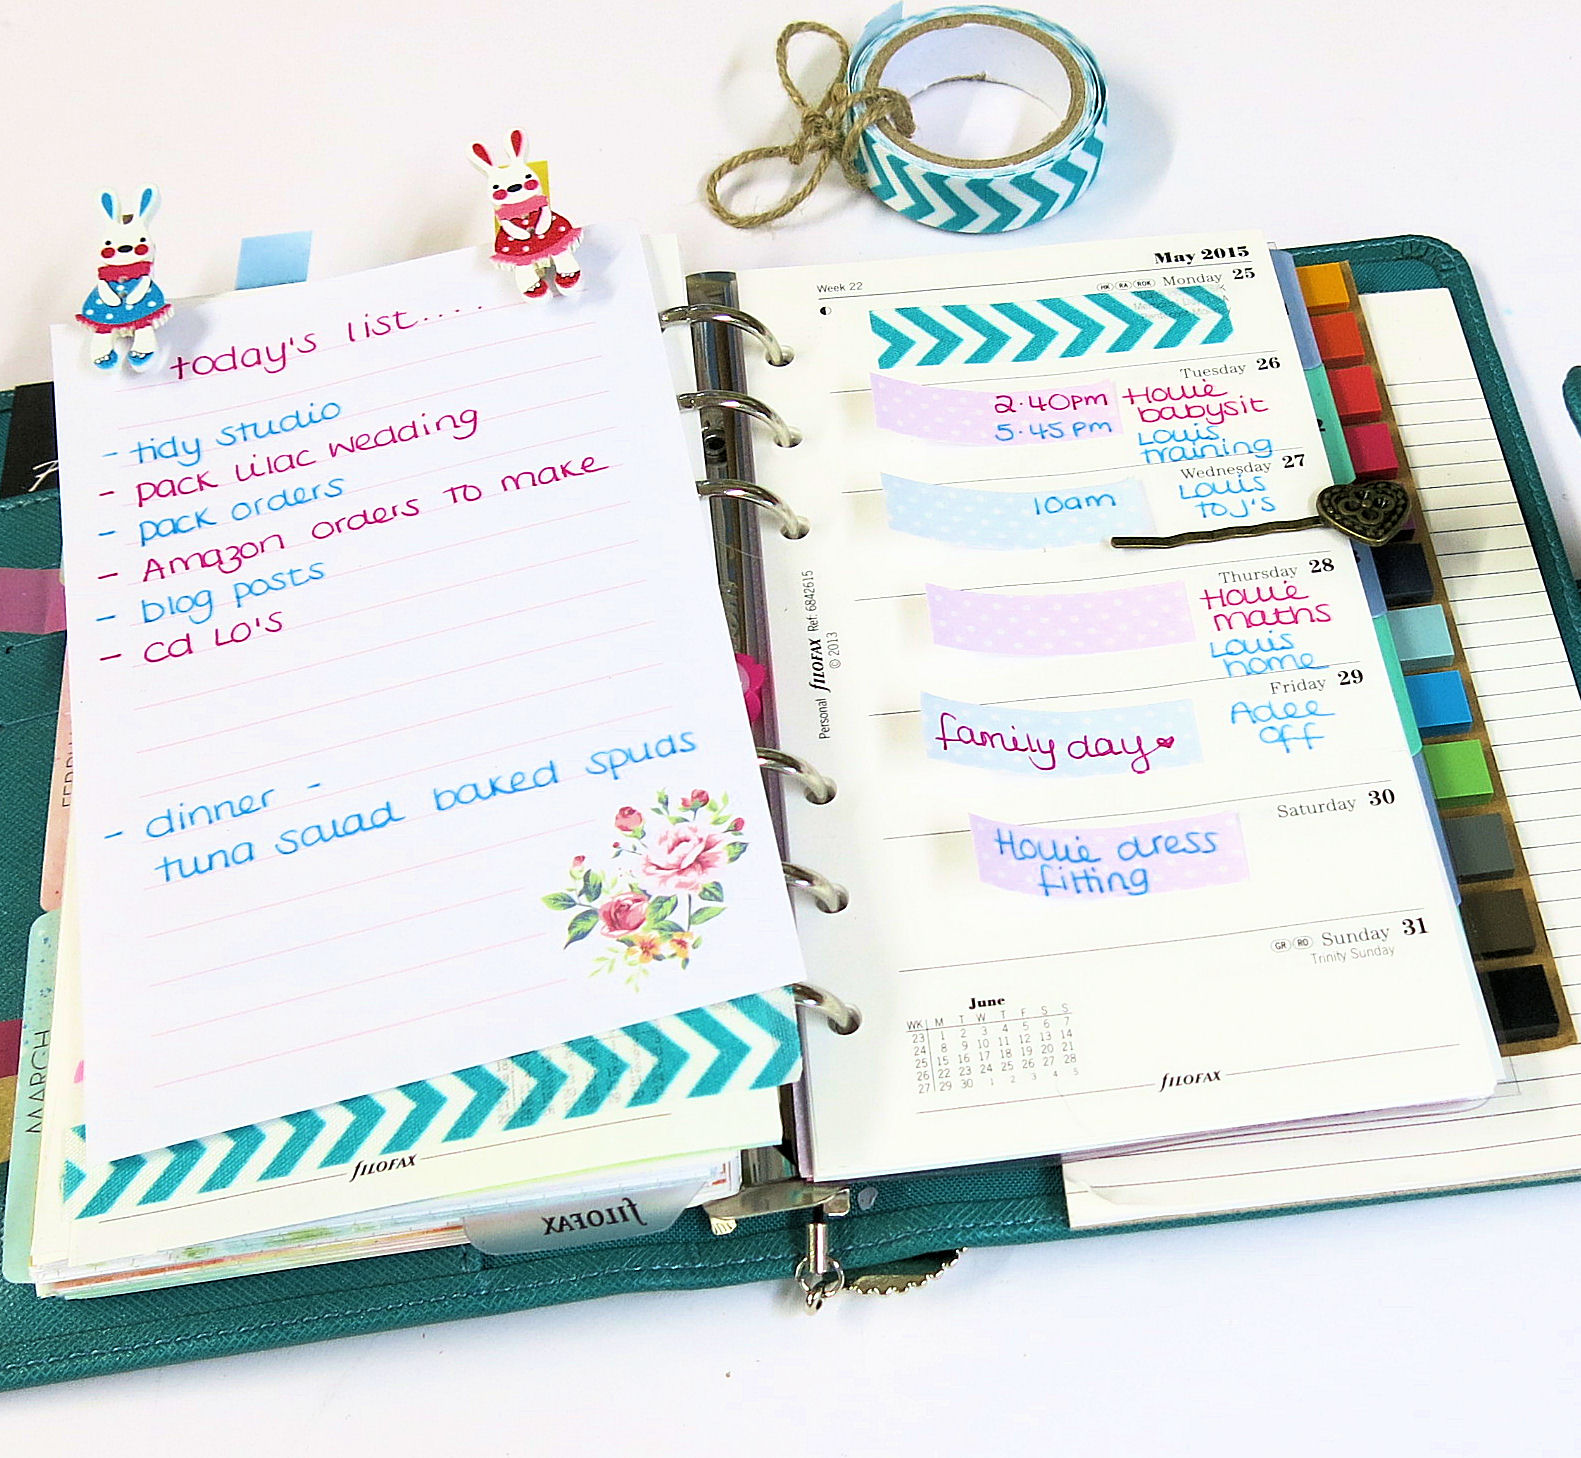 today's list.....
- tidy studio
- pack lilac wedding
- pack orders
- Amazon orders to make
- blog posts
- cd LO's
- dinner -
tuna salad baked spuds
FILOFAX
FILOFAX
MARCH
May 2015
Week 22
HK RA ROK Monday 25
Tuesday 26
2.40pm Hollie
babysit
5.45pm Louis
training
Wednesday 27
10am Louis
to J's
Thursday 28
Hollie
maths
Louis
home
Friday 29
family day
Adee
off
Saturday 30
Hollie dress
fitting
GR RO Sunday 31
Trinity Sunday
June
WK M T W T F S S
23 1 2 3 4 5 6 7
24 8 9 10 11 12 13 14
25 15 16 17 18 19 20 21
26 22 23 24 25 26 27 28
27 29 30 1 2 3 4 5
FILOFAX
Personal FILOFAX Ref: 6842615
© 2013